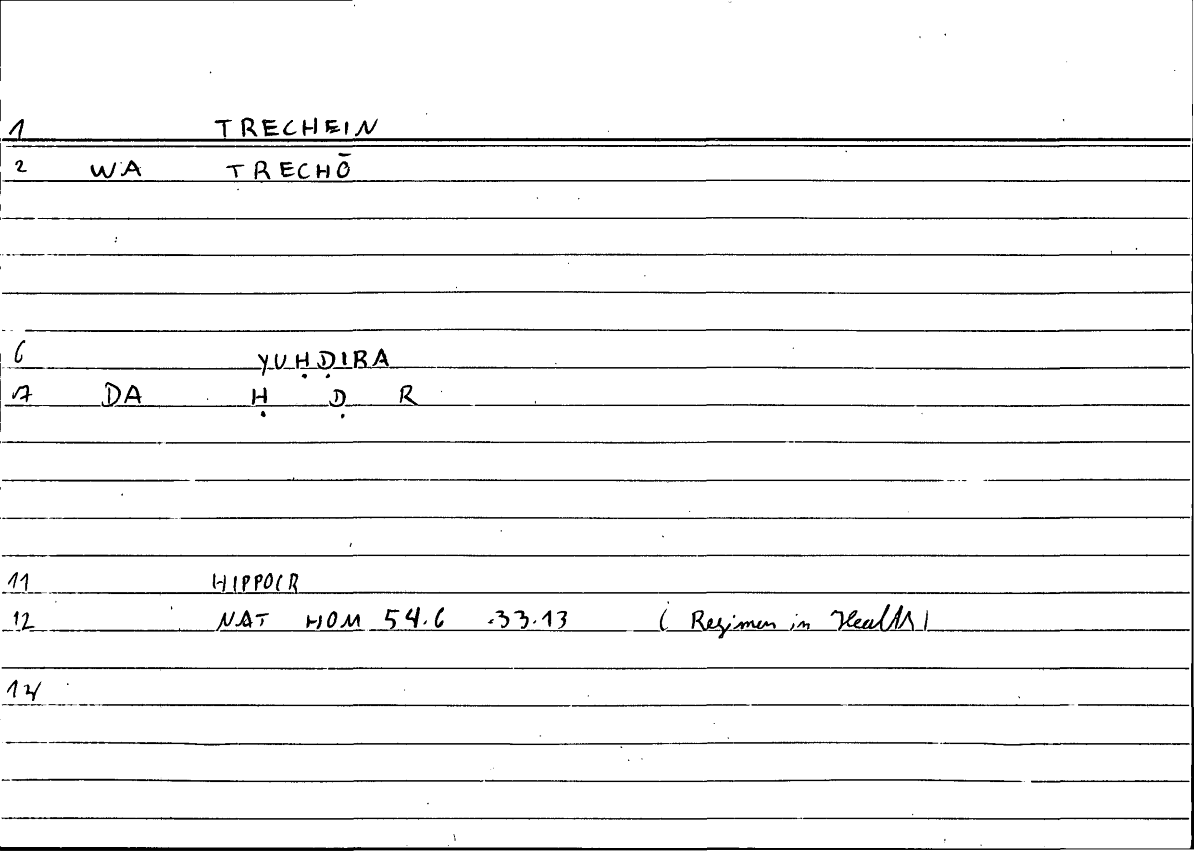 1 TRECHEIN
2 WA TRECHŌ
6 YUḤḌIRA
7 DA Ḥ Ḍ R
11 HIPPOCR
12 NAT HOM 54.6 -33.13 (Regimen in Health)
14